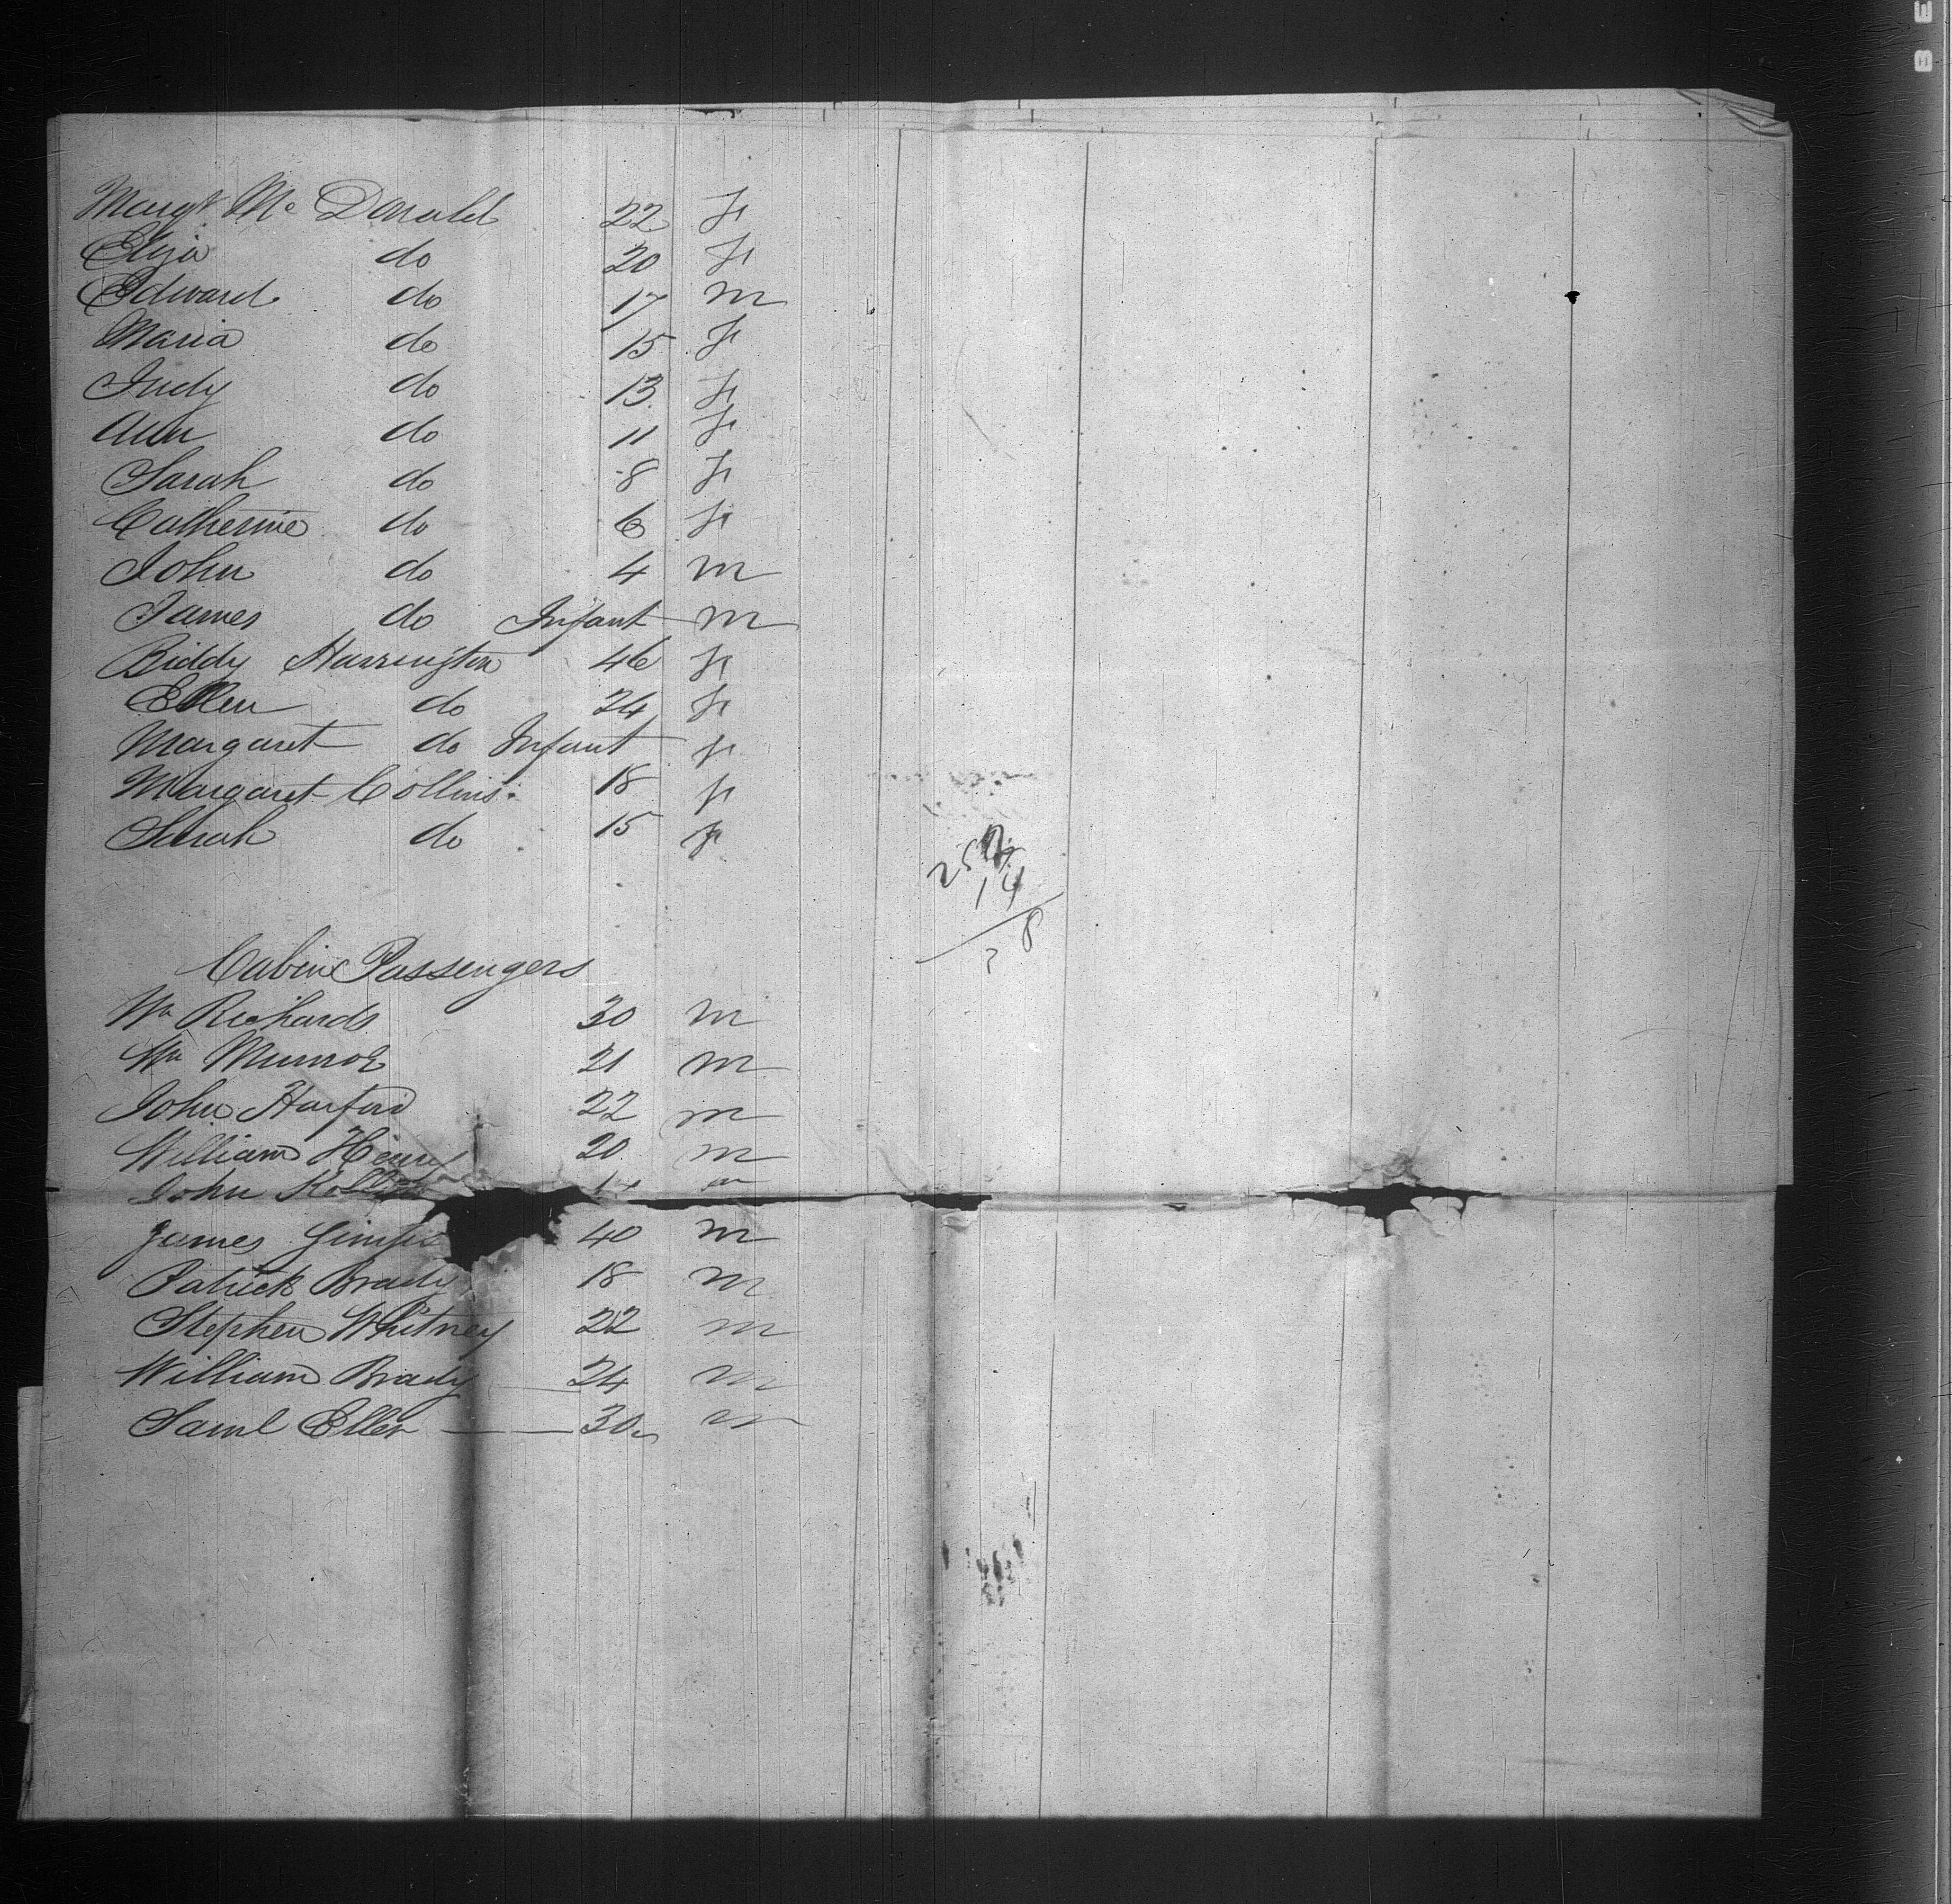 Margt Mc Donald 22 F
Eliza do 20 F
Edward do 17 m
Maria do 15 F
Judy do 13 F
Ann do 11 F
Sarah do 8 F
Catherine do 6 F
John do 4 m
James do Infant m
Biddy Harrington 46 F
Ellen do 24 F
Margaret do Infant F
Margaret Collins 18 F
Sarah do 15 F
14
Cabin Passengers
Wm Richards 30 m
Wm Munroe 21 m
John Harford 22 m
William Henry 20 m
John m
James 40 m
Patrick Brady 18 m
Stephen Whitney 22 m
William Brady 24 m
Saml Eller 30 m